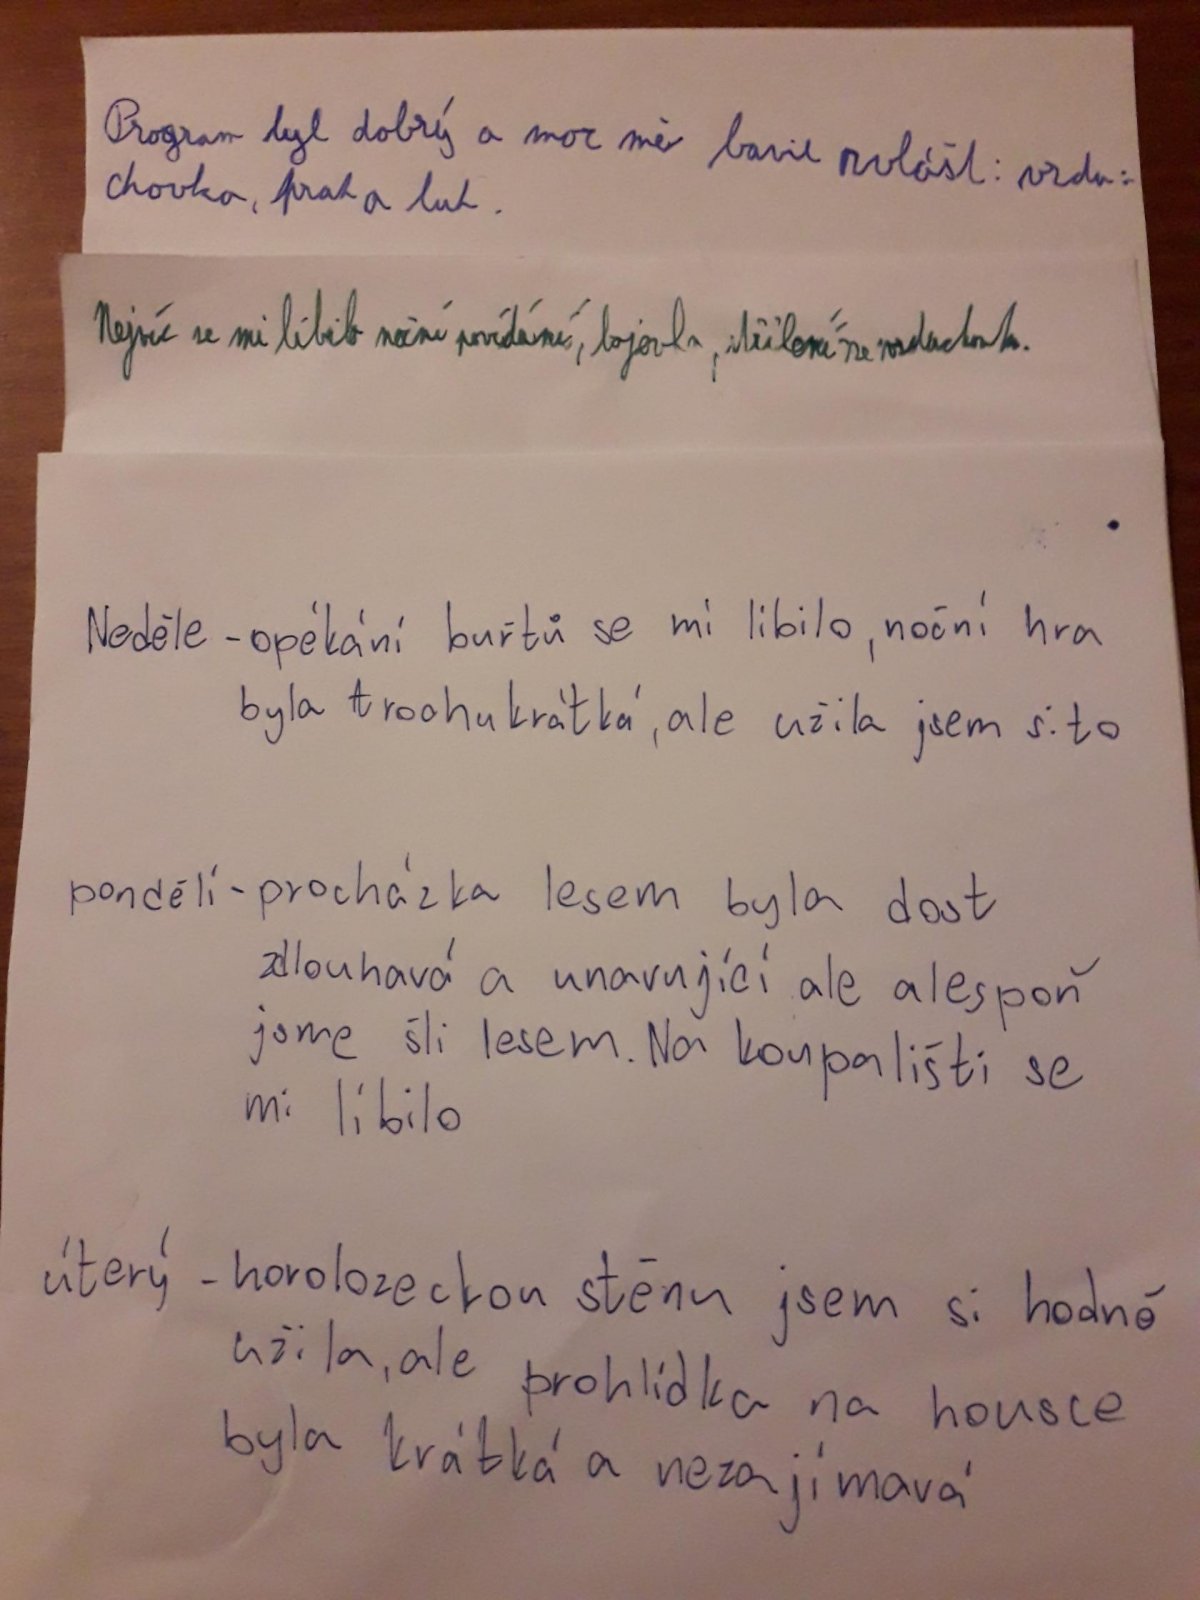 Program byl dobrý a moc mě bavil zvlášt: vzdu:
chovka, prak a luk.
Nejvíc se mi líbilo noční povídání, bojovka, střílení ze vzduchovk.
Neděle - opékání buřtů se mi líbilo, noční hra
byla trochu krátká, ale užila jsem si to
pondělí - procházka lesem byla dost
zdlouhavá a unavující ale alespoň
jsme šli lesem. Na koupališti se
mi líbilo
úterý - horolozeckou stěnu jsem si hodně
užila, ale prohlídka na housce
byla krátká a nezajímavá